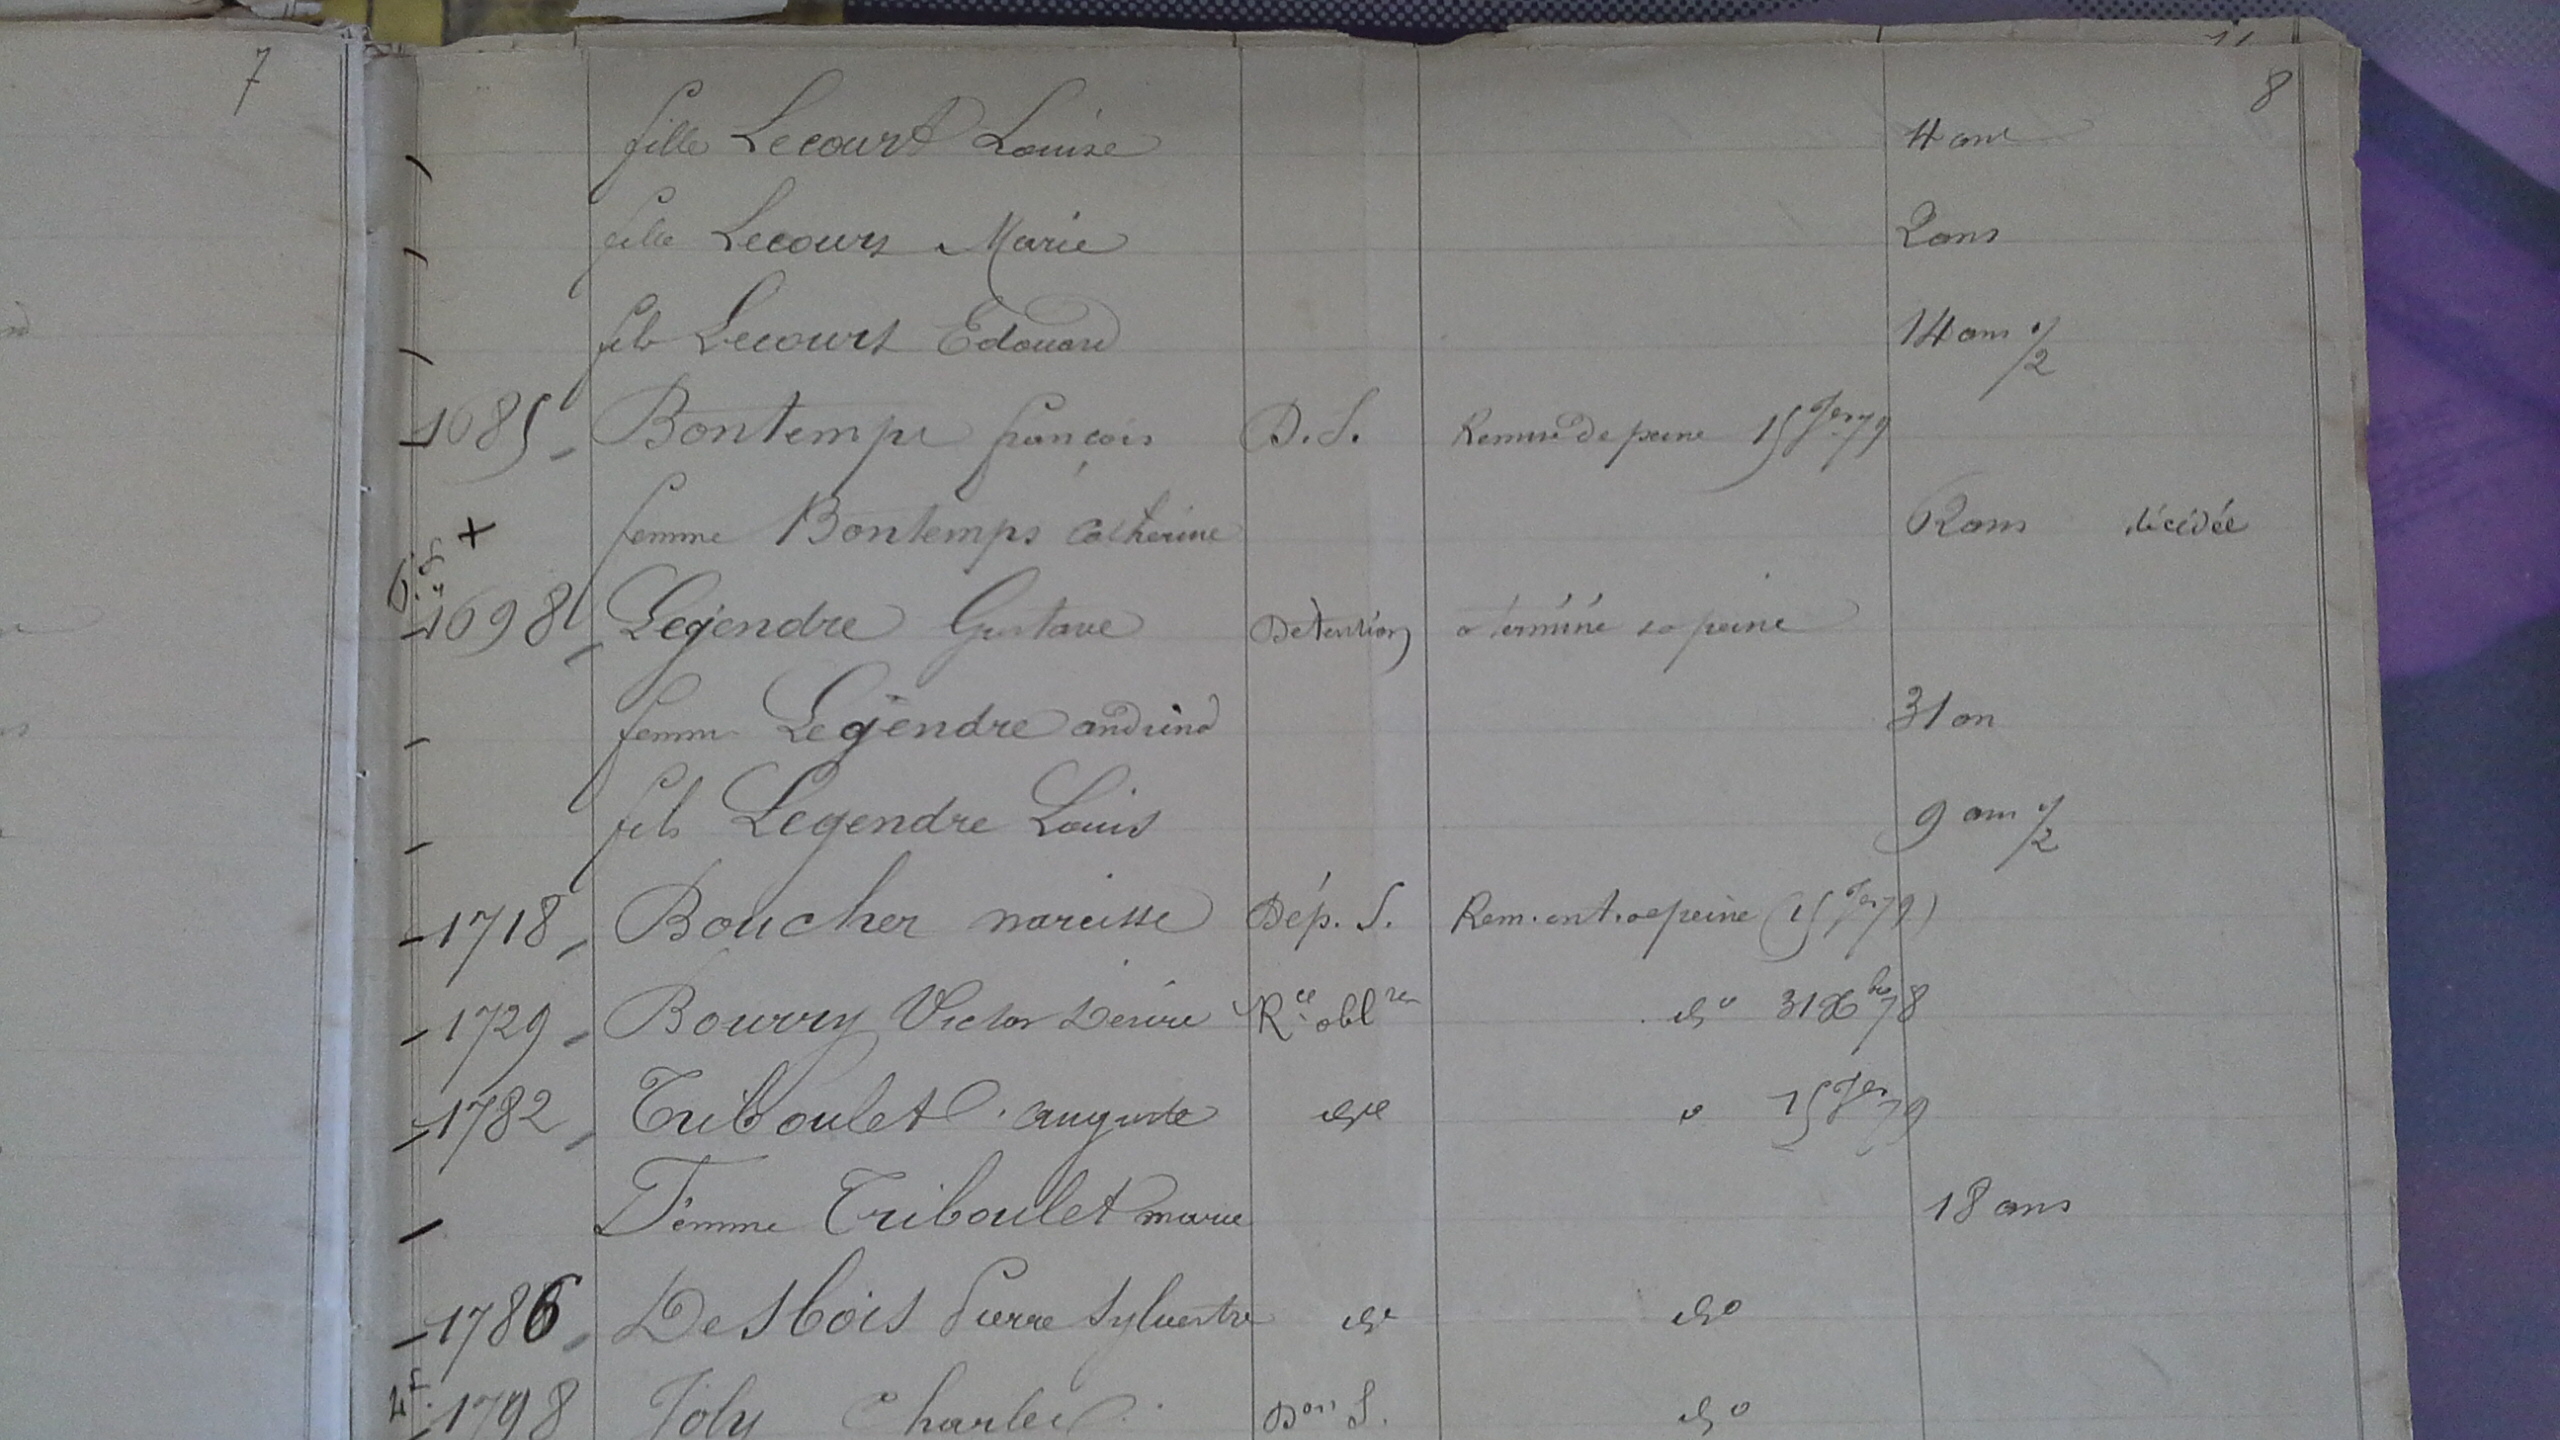 7
8
fille Lecourt Louise 4 ans
fille Lecourt Marie 2 ans
fils Lecourt Edouard 14 ans 1/2
1685 Bontemps françois D. S. Remise de peine 15 Jer 79
femme Bontemps Catherine 62 ans décédée
1698 Legendre Gustave Détention a terminé sa peine
femme Legendre 31 an
fils Legendre Louis 9 ans 1/2
1718 Boucher narcisse Dép. S. Rem. ent. de peine (15 Jer 79)
1729 Bourry Victor Désiré Rce oblre do 31 Xbre 78
1782 Triboulet auguste do 15 Jer 79
Femme Triboulet marie 18 ans
1786 Desbois Pierre Sylvestre do do
1798 Joly Charles Don S. do